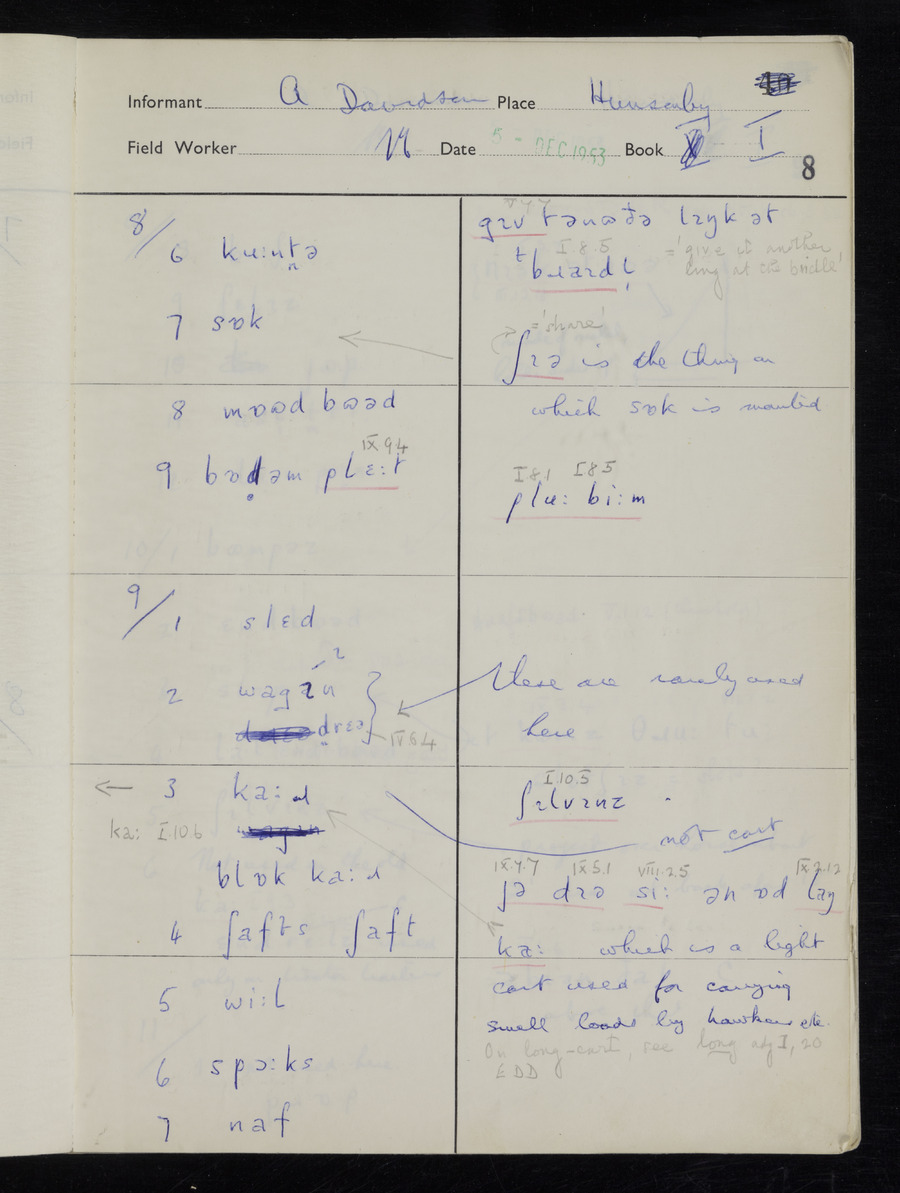 Informant A Davidson Place Hunsonby
Field Worker Date 5 - DEC 1953 Book I
8
8/
6 kʉ:ntə
7 sɒk
8 mɒʊəd bʊəd
IX 9 4
9 bɒdəm plɛ:t
9/
1 slɛd
2 wagɪn
drɛə IV 6 4
3 ka:ɹ
ka: I.10 6
blɒk ka:ɹ
4 ʃafts ʃaft
5 wi:l
6 spɔ:ks
7 naf
gɪv tənʊðə lɪŋk ət
I 8 5
= 'give it another
ling at the bridle'
= 'share'
ʃɪə is the thing on
which sɒk is mounted
I 8.1 I 8 5
plʉ: bi:m
these are rarely used
here
I.10.5
ʃɪlvɪnz
not cart
IX.7.7 IX 5.1 VIII.2.5 IX.2.12
drə si: ən ɒd laŋ
ka: which is a light
cart used for carrying
small loads by hawkers etc.
On long-cart, see long adj I, 20
EDD